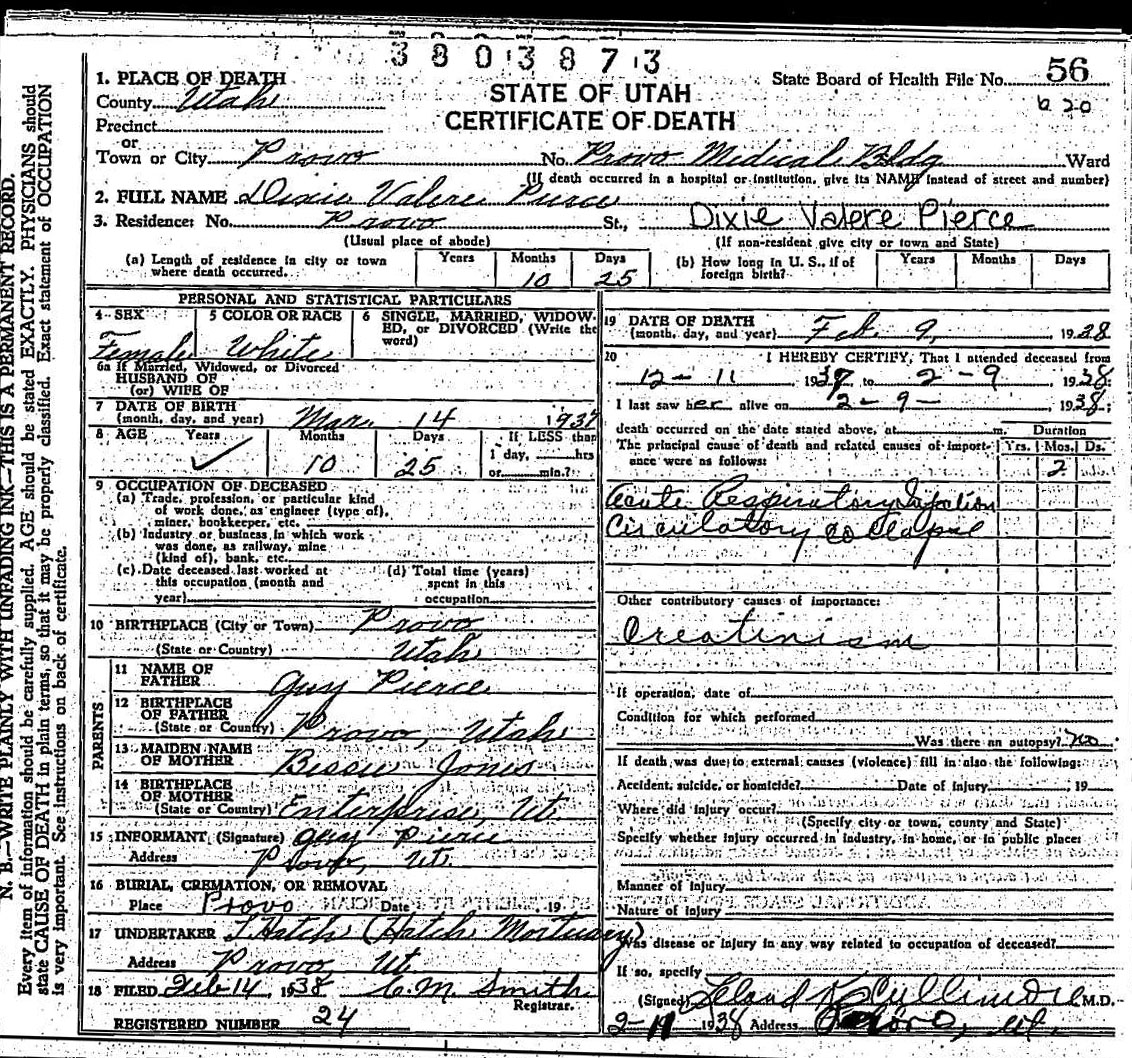 3803873
1. PLACE OF DEATH
State Board of Health File No. 56
County Utah
STATE OF UTAH
6 20
Precinct
CERTIFICATE OF DEATH
or
Town or City Provo No. Provo Medical Bldg Ward
(If death occurred in a hospital or institution, give its NAME instead of street and number)
2. FULL NAME Dixie Valere Pierce
3. Residence: No. Provo St., Dixie Valere Pierce
(Usual place of abode) (If non-resident give city or town and State)
(a) Length of residence in city or town where death occurred. Years Months 10 Days 25
(b) How long in U. S., if of foreign birth? Years Months Days
PERSONAL AND STATISTICAL PARTICULARS
4 SEX Female
5 COLOR OR RACE White
6 SINGLE, MARRIED, WIDOWED, or DIVORCED (Write the word)
6a If Married, Widowed, or Divorced
HUSBAND OF
(or) WIFE OF
7 DATE OF BIRTH
(month, day, and year) Mar. 14 1937
8 AGE Years Months 10 Days 25 If LESS than
1 day, hrs
or min.?
9 OCCUPATION OF DECEASED
(a) Trade, profession, or particular kind
of work done, as engineer (type of),
miner, bookkeeper, etc.
(b) Industry or business in which work
was done, as railway, mine
(kind of), bank, etc.
(c) Date deceased last worked at
this occupation (month and
year)
(d) Total time (years)
spent in this
occupation
10 BIRTHPLACE (City or Town) Provo
(State or Country) Utah
PARENTS
11 NAME OF
FATHER Guy Pierce
12 BIRTHPLACE
OF FATHER
(State or Country) Provo, Utah
13 MAIDEN NAME
OF MOTHER Bessie Jones
14 BIRTHPLACE
OF MOTHER
(State or Country) Enterprise, Ut
15 INFORMANT (Signature) Guy Pierce
Address Provo, Ut.
16 BURIAL, CREMATION, OR REMOVAL
Place Provo Date 19
17 UNDERTAKER T. Hatch (Hatch Mortuary)
Address Provo, Ut
18 FILED Feb-14 1938 C. M. Smith
Registrar.
REGISTERED NUMBER 24
19 DATE OF DEATH
(month, day, and year) Feb. 9, 1938
20 I HEREBY CERTIFY, That I attended deceased from
12-11 1937 to 2-9, 1938.
I last saw her alive on 2-9- 1938;
death occurred on the date stated above, at m. Duration
The principal cause of death and related causes of importance were as follows: Yrs. Mos. Ds.
2
Acute Respiratory Infection
Circulatory collapse
Other contributory causes of importance:
Creatinism
If operation, date of
Condition for which performed
Was there an autopsy? no
If death was due to external causes (violence) fill in also the following:
Accident, suicide, or homicide? Date of Injury 19
Where did injury occur?
(Specify city or town, county and State)
Specify whether injury occurred in industry, in home, or in public place:
Manner of Injury
Nature of Injury
Was disease or injury in any way related to occupation of deceased?
If so, specify
(Signed) Leland K Cullimore M.D.
2-11 1938 Address Provo, Ut.
N. B.—WRITE PLAINLY WITH UNFADING INK—THIS IS A PERMANENT RECORD.
Every item of information should be carefully supplied. AGE should be stated EXACTLY. PHYSICIANS should
state CAUSE OF DEATH in plain terms, so that it may be properly classified. Exact statement of OCCUPATION
is very important. See instructions on back of certificate.